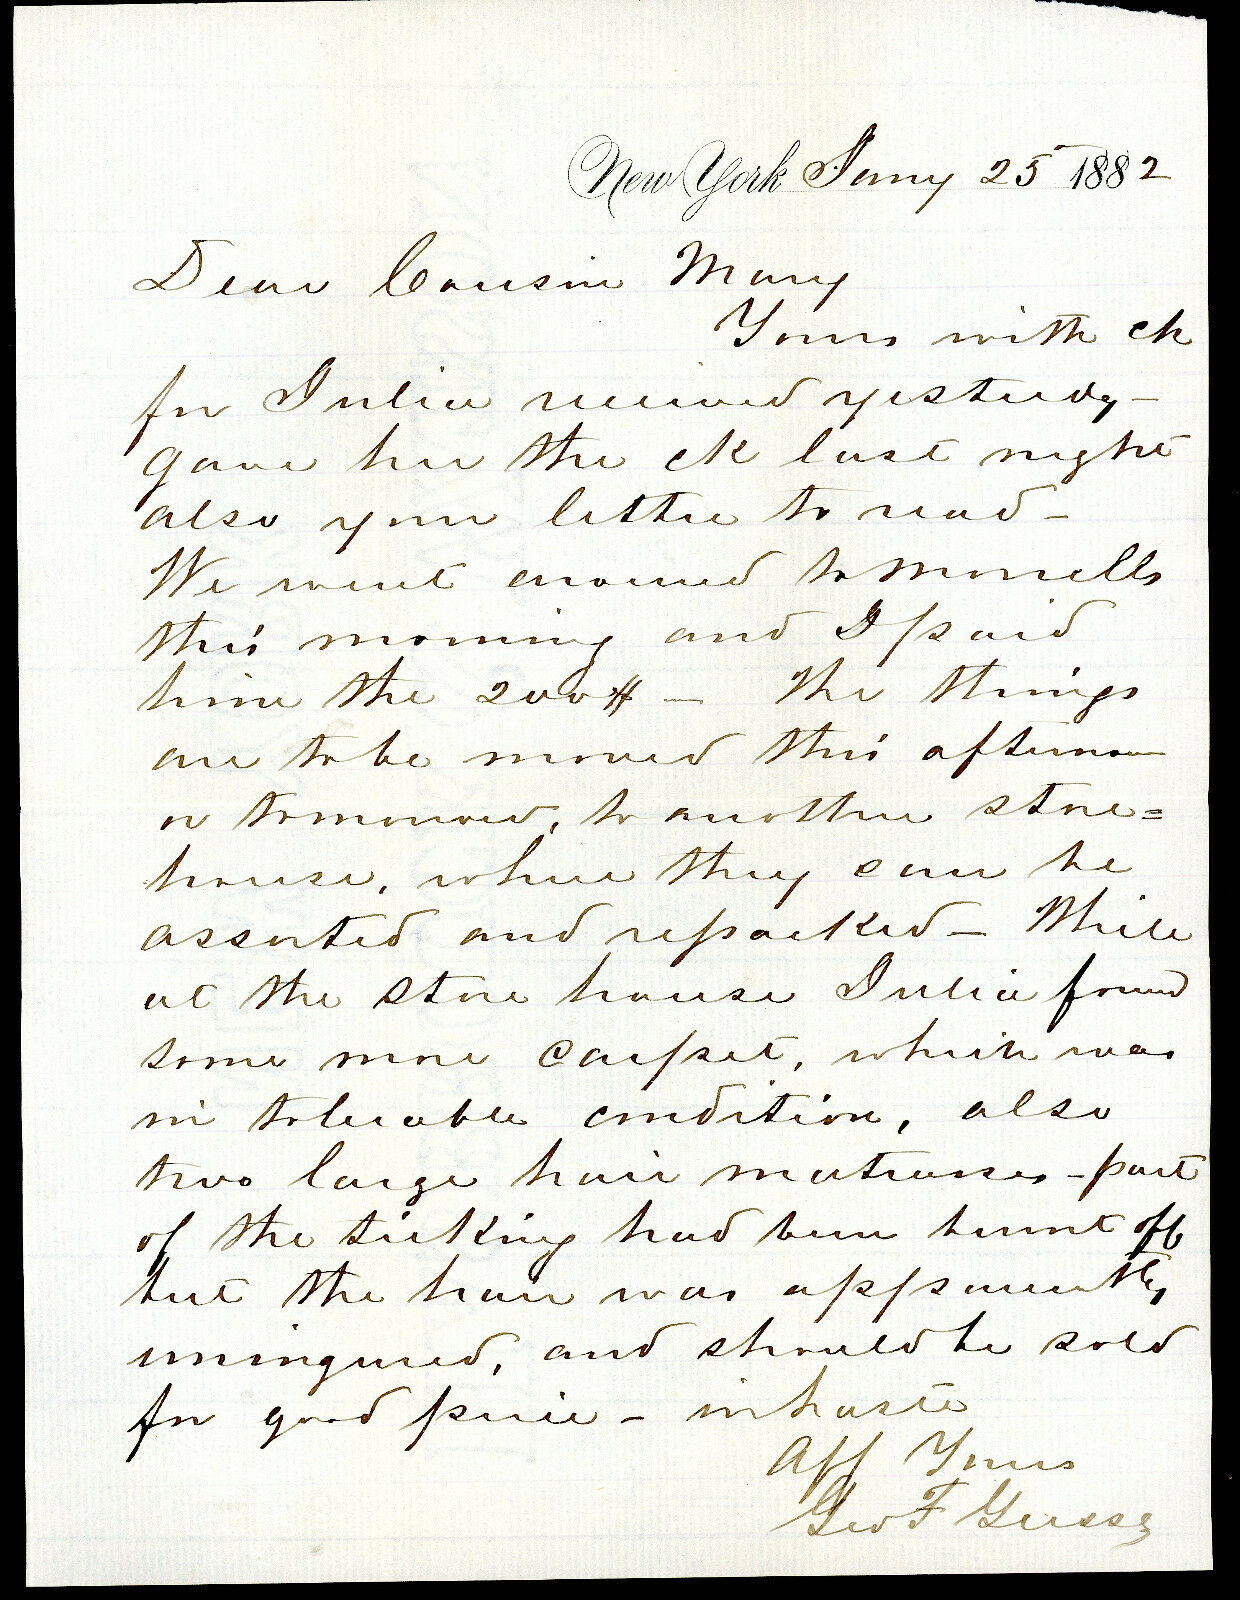 New York Jany 25 1882
Dear Cousin Mary
Yours with ck
for Julia received yesterdy -
gave her the ck last night
also your letter to read -
We went around to Morrells
this morning and I paid
him the 200$ - The things
are to be moved this afternoon
or tomorrow, to another store=
house, where they can be
assorted and repacked - While
at the store house Julia found
some more Carpet, which was
in tolerable condition, also
two large hair matrasses - part
of the ticking had been burnt off
but the hair was apparently
uningured, and should be sold
for good price - in haste
Aff Yours
Geo F